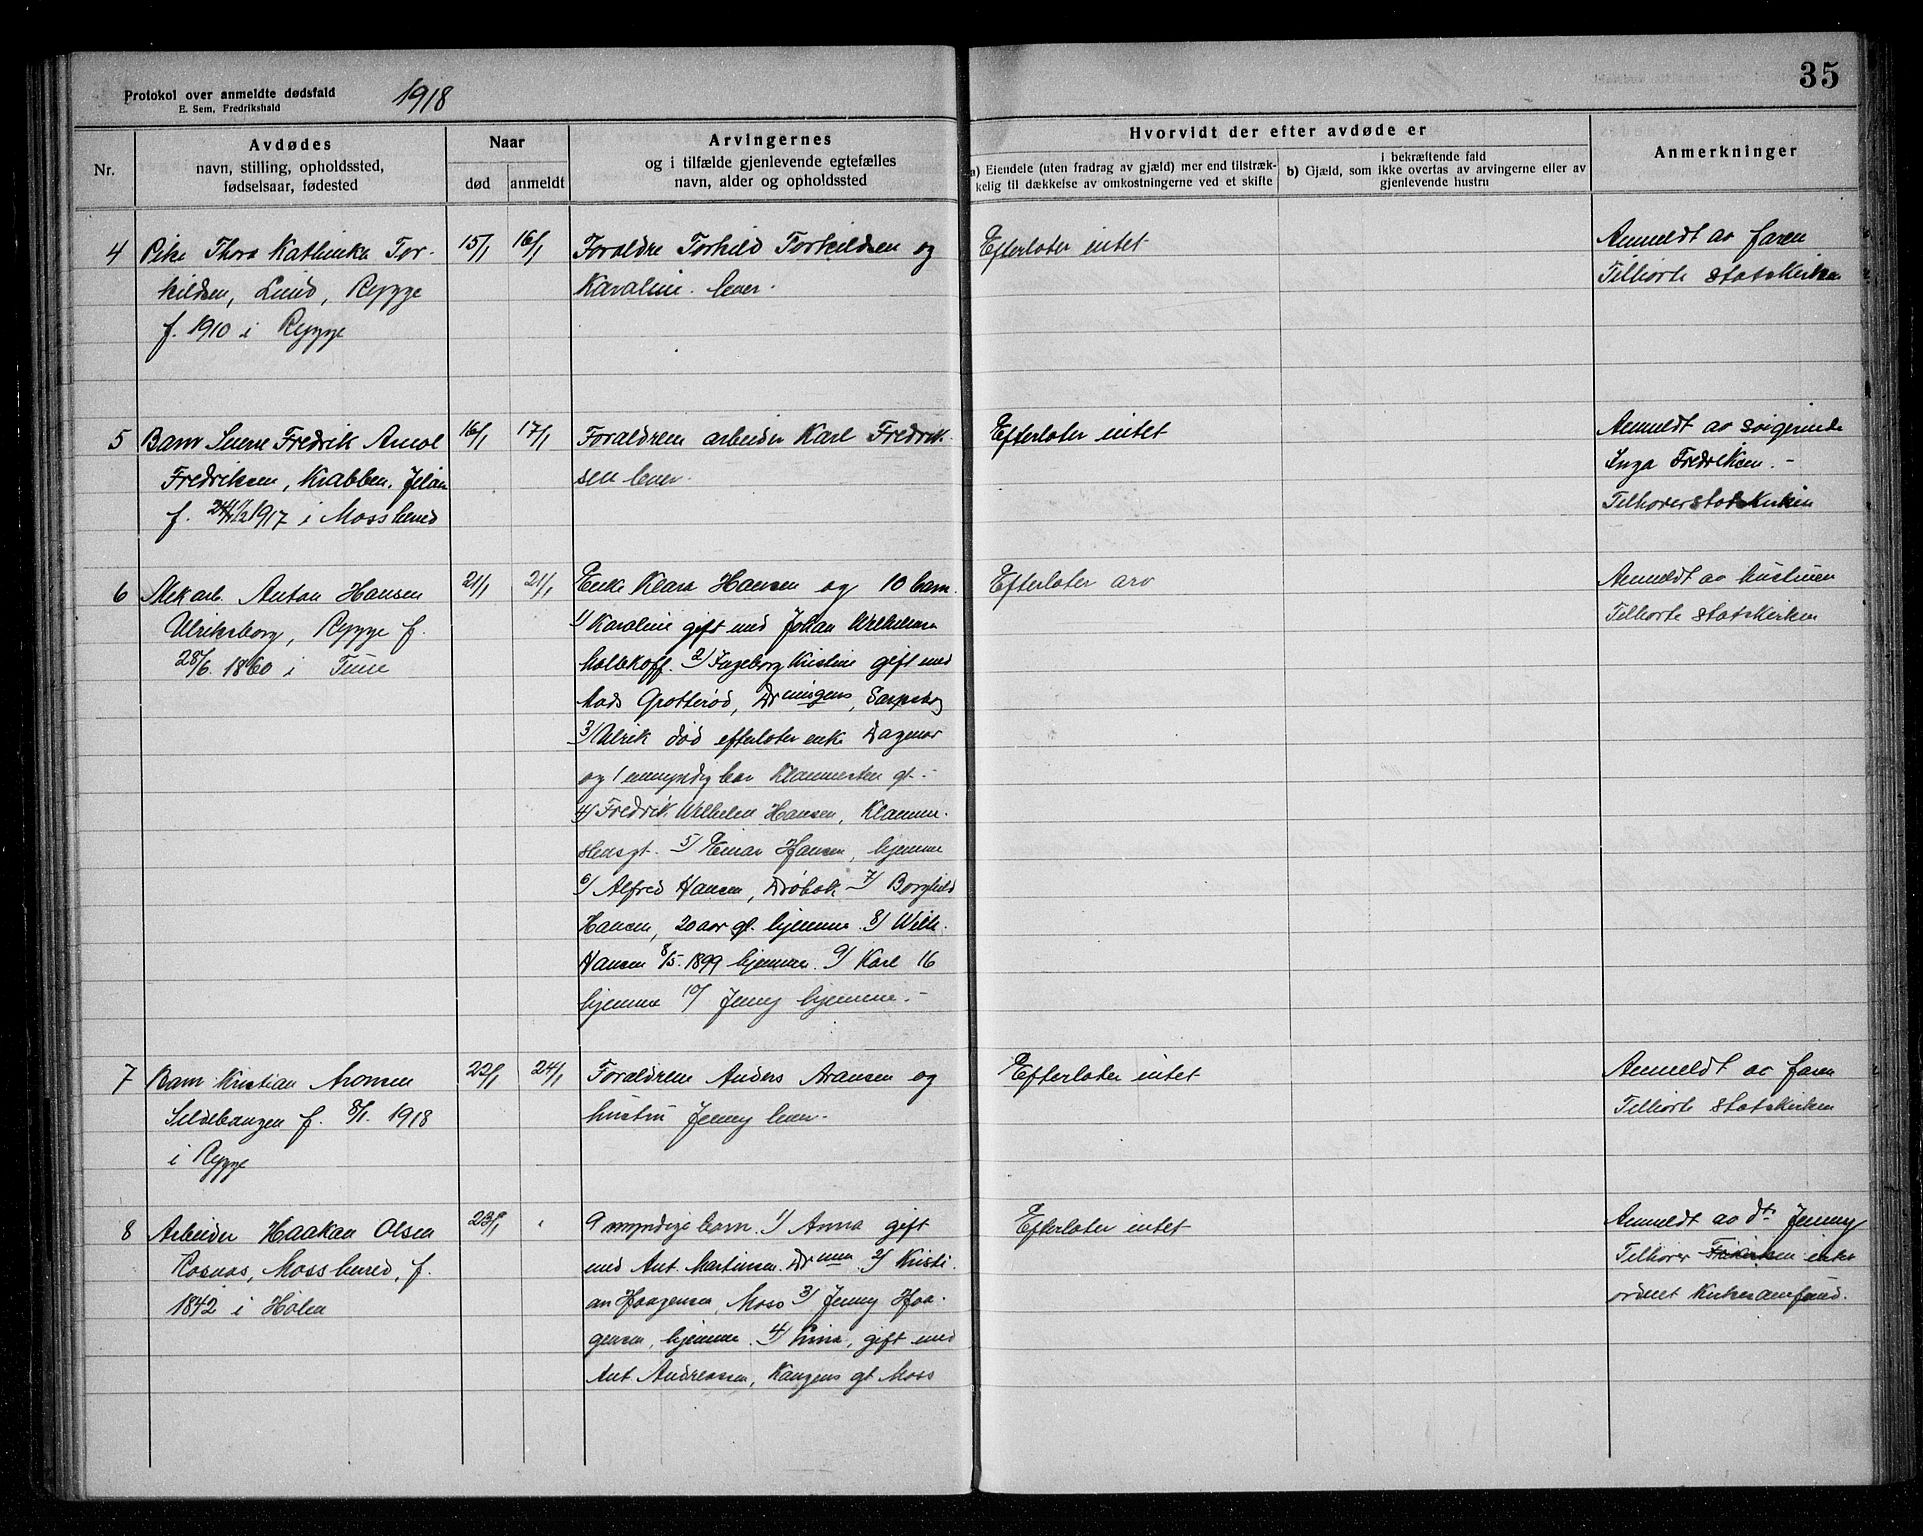 35
Protokol over anmeldte dødsfald
E. Sem, Fredrikshald
1918
Nr.
Avdødes
navn, stilling, opholdssted,
fødselsaar, fødested
Naar
død
anmeldt
Arvingernes
og i tilfælde gjenlevende egtefælles
navn, alder og opholdssted
Hvorvidt der efter avdøde er
a) Eiendele (uten fradrag av gjæld) mer end tilstræk-
kelig til dækkelse av omkostningerne ved et skifte
i bekræftende fald
b) Gjæld, som ikke overtas av arvingerne eller av
gjenlevende hustru
Anmerkninger
4
Pike Thora Kathinka Tor-
kildsen, Lund, Rygge
f. 1910 i Rygge
15/1
16/1
Forældre Torkild Torkildsen og
Karoline. lever.
Efterlater intet
Anmeldt av faren
Tilhørte statskirken
5
Barn Sverre Fredrik Arnol
Fredriksen, Krabben, Jeløen
f. 24/12 1917 i Mossherred
16/1
17/1
Forældrene arbeider Karl Fredrik-
sen lever.
Efterlater intet
Anmeldt av svigerinde
Inga Fredriksen. -
Tilhører statskirken
6
Mek arb. Anton Hansen
Ulriksborg, Rygge f.
28/6. 1860 i Tune
21/1
21/1
Enke Klara Hansen og 10 barn.
1) Karoline gift med Johan Wilhelmsen
2) Ingeborg Kristine gift med
Mads Grotterød, Sarpsborg
3) Ulrik død efterlater enke Dagmar
og 1 umyndig barn gt. -
4) Fredrik Wilhelm Hansen,
5) Einar Hansen, hjemme
6) Alfred Hansen, Drøbak 7) Borghild
Hansen, 20 aar gl. hjemme. 8) Wilh.
Hansen 8/5. 1899 hjemme. 9) Karl 16
hjemme 10) Jenny hjemme. -
Efterlater arv
Anmeldt av hustruen
Tilhørte statskirken
7
Barn Kristian Aronsen
Sildebaugen f. 8/1. 1918
i Rygge
22/1
24/1
Forældrene Anders Aronsen og
hustru Jenny lever.
Efterlater intet
Anmeldt av faren
Tilhørte statskirken
8
Arbeider Haakan Olsen
Rosnæs, Mossherred, f.
1842 i Hølen
23/1
9 myndige barn. 1) Anna gift
med Ant. Martinsen. Drmmen 2) Kristi-
an Haagensen, Moss 3) Jenny Haa-
gensen, hjemme. 4) Lina, gift med
Ant. Andreassen, Kongens gt Moss
Efterlater intet
Anmeldt av dt. Jenny
Tilhører Frikirken intet
ordnet kirkesamfund.